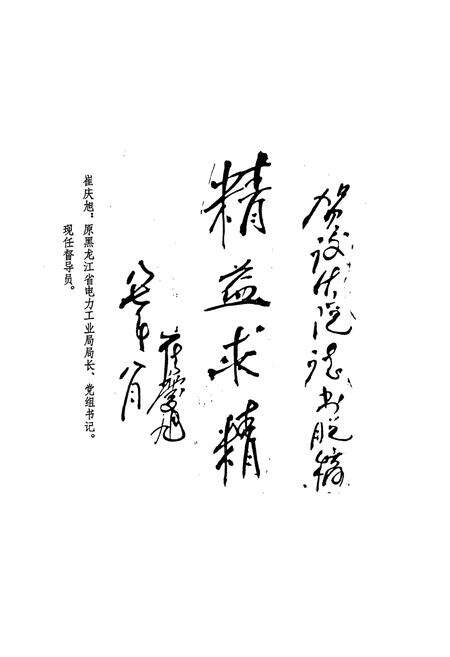 贺设计院志书脱稿
精益求精
崔庆旭
八七年八月
崔庆旭：原黑龙江省电力工业局局长、党组书记。
现任督导员。